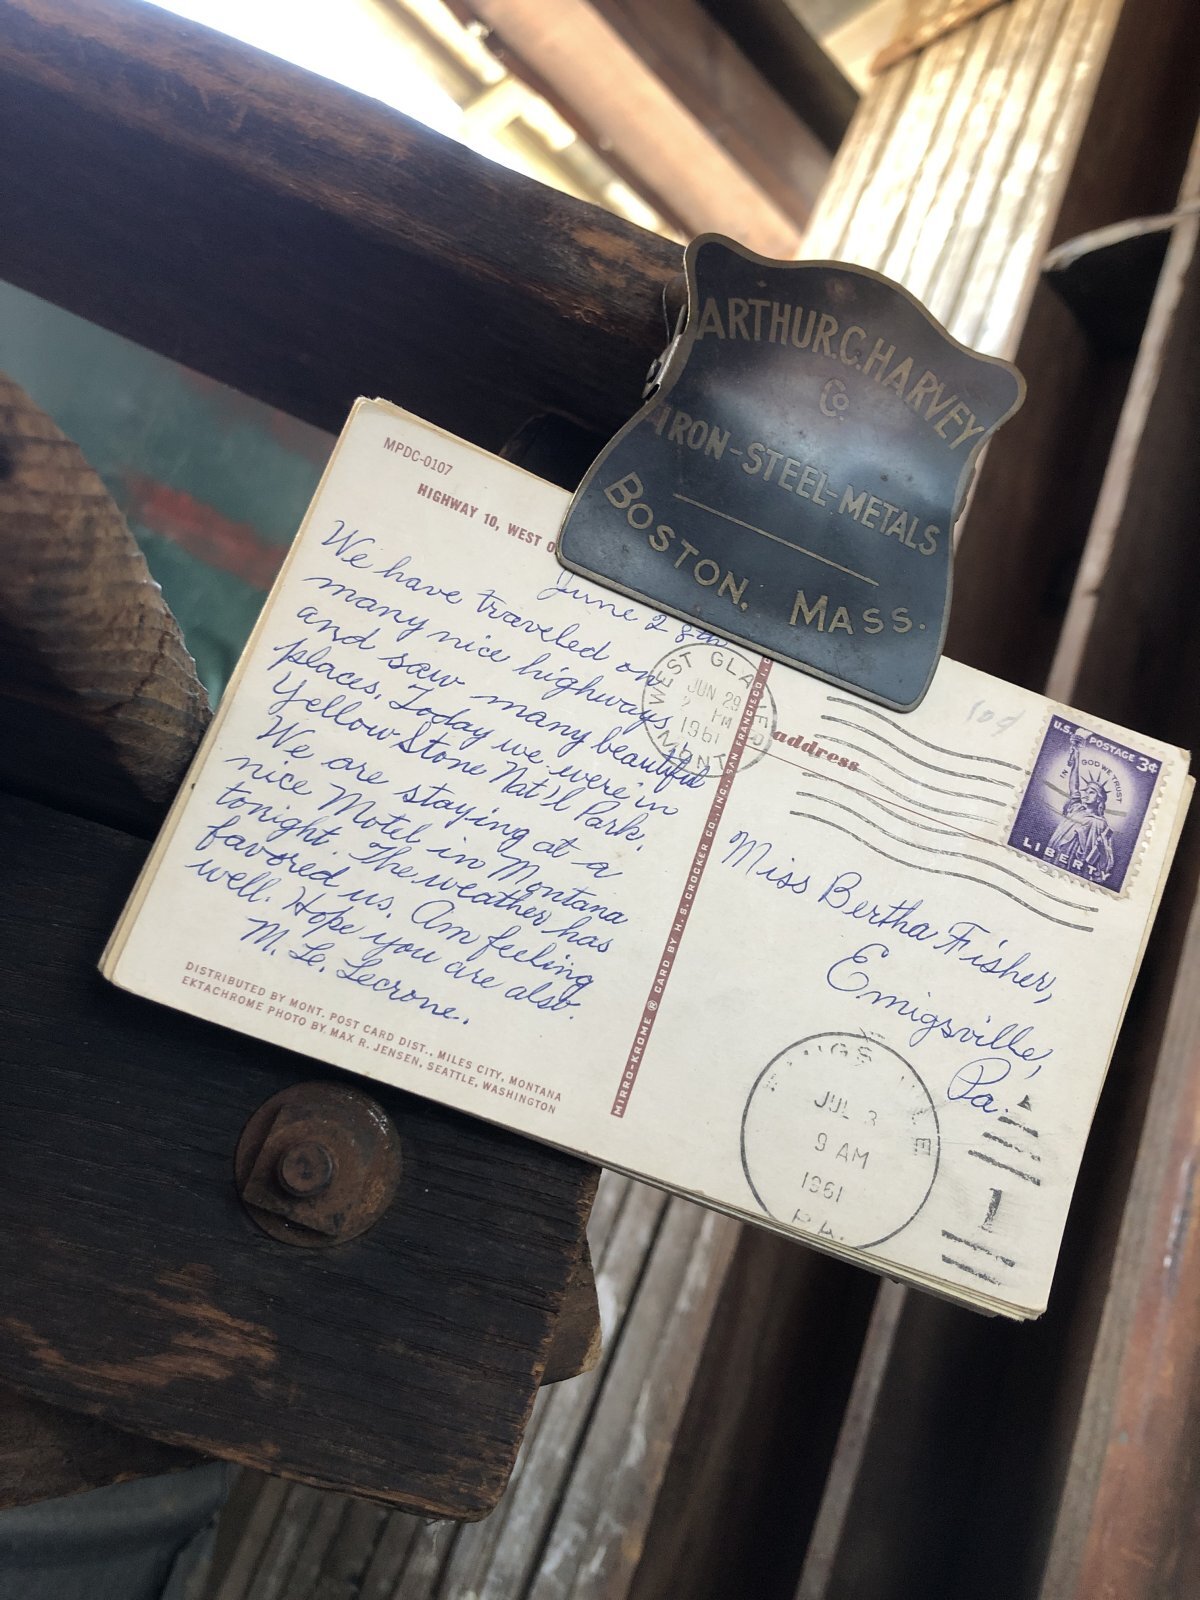 ARTHUR C. HARVEY
Co
IRON-STEEL-METALS
BOSTON. MASS.
MPDC-0107
HIGHWAY 10, WEST O
June 28th
We have traveled on
many nice highways
and saw many beautiful
places. Today we were in
Yellow Stone Nat'l Park.
We are staying at a
nice Motel in Montana
tonight. The weather has
favored us. Am feeling
well. Hope you are also.
M. Le. Lecrone.
DISTRIBUTED BY MONT. POST CARD DIST., MILES CITY, MONTANA
EKTACHROME PHOTO BY MAX R. JENSEN, SEATTLE, WASHINGTON
MIRRO-KROME ® CARD BY H. S. CROCKER CO., INC., SAN FRANCISCO 1, C
WEST GLACIER
JUN 29
2 PM
1961
MONT
address
10¢
U.S. POSTAGE 3¢
IN GOD WE TRUST
LIBERTY
Miss Bertha Fisher,
Emigsville,
Pa.
JUL 3
9 AM
1961
PA.
1